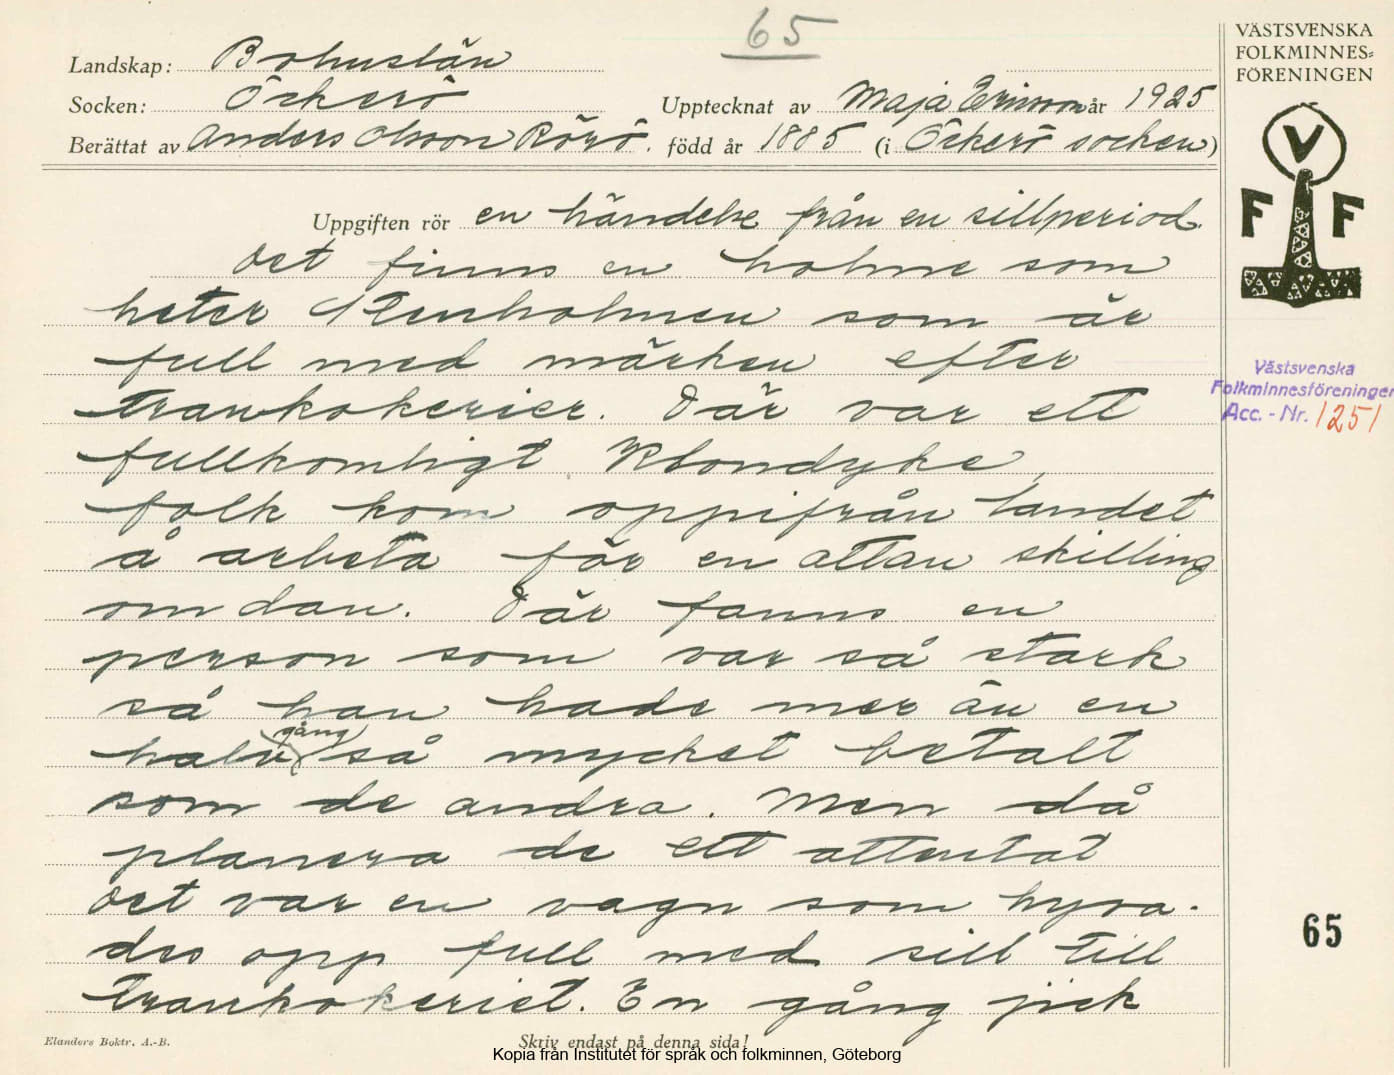 65
VÄSTSVENSKA
FOLKMINNES=
FÖRENINGEN
Landskap: Bohuslän
Socken: Öckerö
Upptecknat av Maja Ericson år 1925
Berättat av Anders Olsson Rörö. född år 1885 (i Öckerö socken)
V
F F
Uppgiften rör en händelse från en sillperiod.
Det finns en holme som
heter Stenholmen som är
full med märken efter
trankokerier. Där var ett
fullkomligt Klondyke,
folk kom oppifrån landet
å arbeta för en attan skilling
om dan. Där fanns en
person som var så stark
så han hade mer än en
gång
halv så mycket betalt
som de andra. Men då
planera de ett attentat
Det var en vagn som hyra-
des opp full med sill till
trankokeriet. En gång jick
Västsvenska
Folkminnesföreningen
Acc. - Nr. 1251
65
Elanders Boktr. A.-B.
Skriv endast på denna sida!
Kopia från Institutet för språk och folkminnen, Göteborg